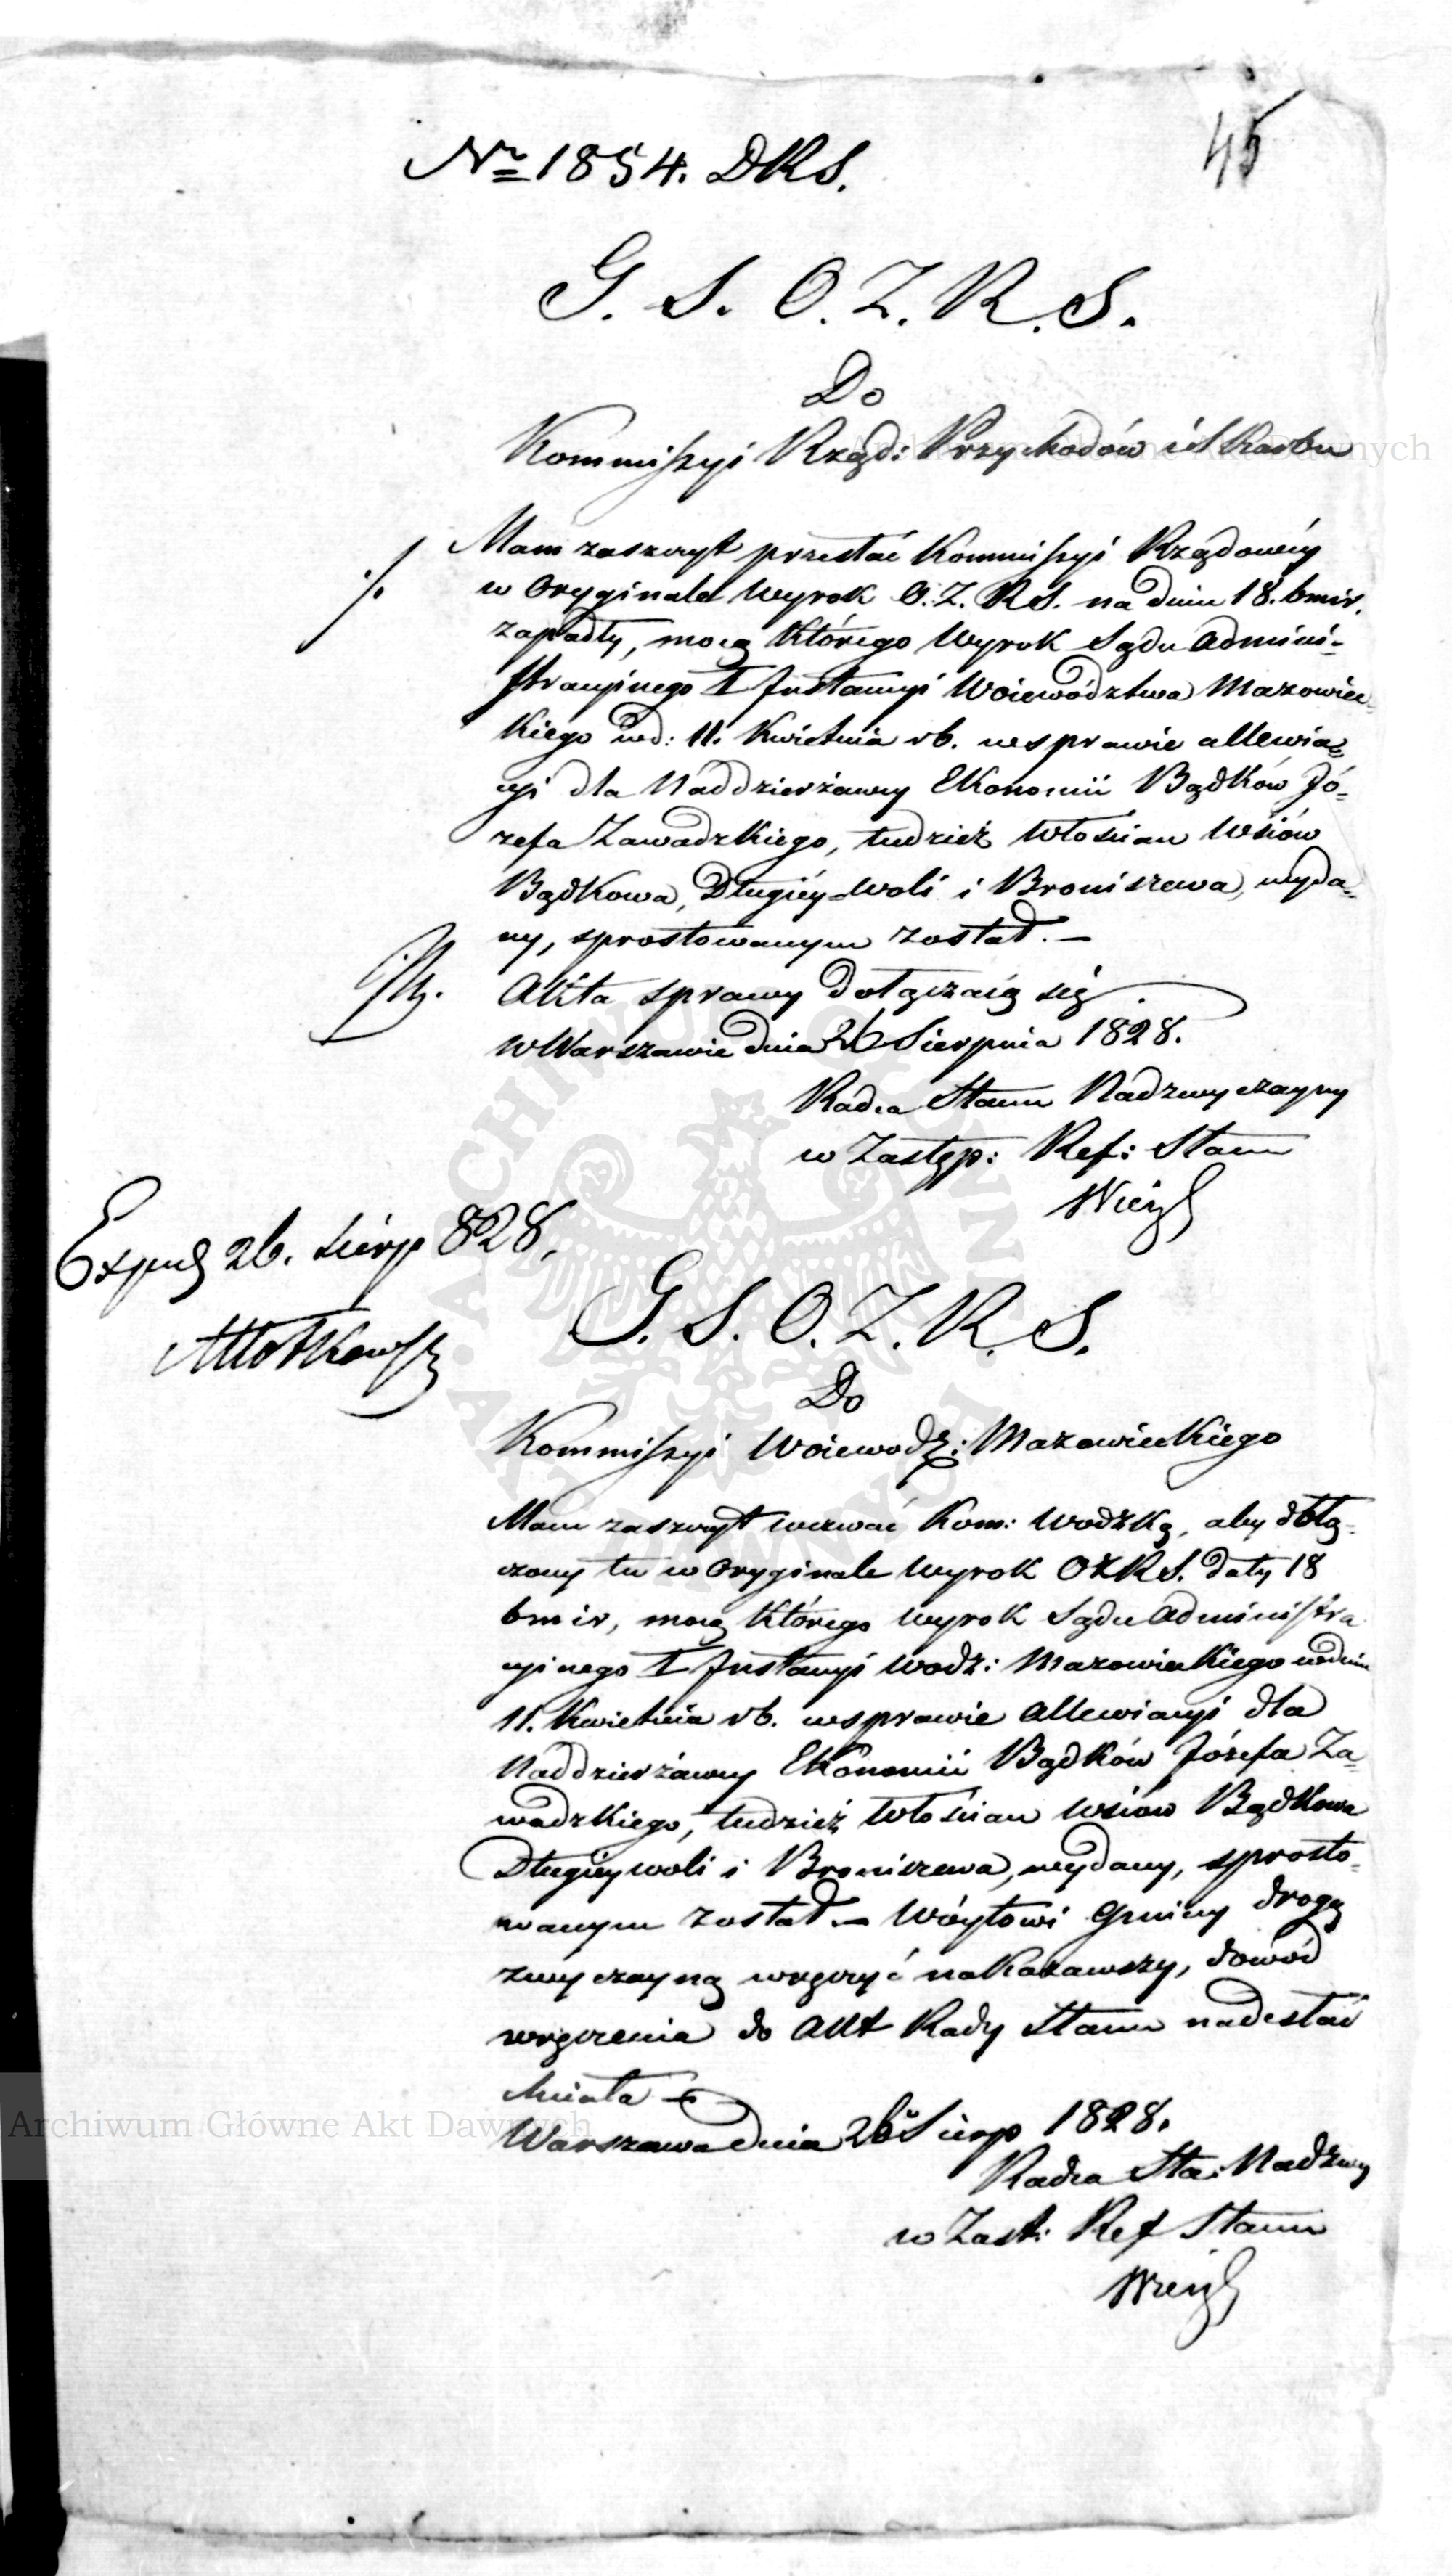 45
Nr 1854. DRS.
G. S. O. Z. R. S.
Do
Kommissyi Rząd: Przychodów i Skarbu
Mam zaszczyt przesłać Kommissyi Rządowéy
w Oryginale Wyrok O. Z. R S. na dniu 18. bmir.
zapadły, mocą którego Wyrok Sądu Admini-
stracyinego I Instancyi Woiewództwa Mazowiec-
kiego z d: 11. Kwietnia rb. w sprawie allewia-
cyi dla Naddzierżawcy Ekonomii Bądków Jó-
zefa Zawadzkiego, tudzież Włościan Wsiów
Bądkowa, Długiéy-Woli i Broniszewa, wyda-
ny, sprostowanym został. —
Akta sprawy dołączaią się
w Warszawie dnia 26 Sierpnia 1828.
Radca Stanu Nadzwyczayny
w Zastęp: Ref: Stanu
Exped 26. Sierp 828.
G. S. O. Z. R. S.
Do
Kommissyi Woiewodz: Mazowieckiego
Mam zaszczyt wezwać Kom: Wodzką, aby dołą-
czony tu w Oryginale Wyrok OZRS. daty 18
bmir, mocą którego Wyrok Sądu Administra
cyinego I Instancyi Wodz: Mazowieckiego w dniu
11. Kwietnia rb. w sprawie Allewiacyi dla
Naddzierżawcy Ekonomii Bądków Józefa Za-
wadzkiego, tudzież Włościan Wsiów Bądkowa
Długiéy woli i Broniszewa, wydany, sprosto-
wanym został. — Wóytowi Gminy drogą
zwyczayną wręczyć nakazawszy, dowód
wręczenia do Akt Rady Stanu nadesłać
chciała —
Warszawa dnia 26 Sierp 1828.
Radca Sta: Nadzwy
w Zast: Ref Stanu
Archiwum Główne Akt Dawnych